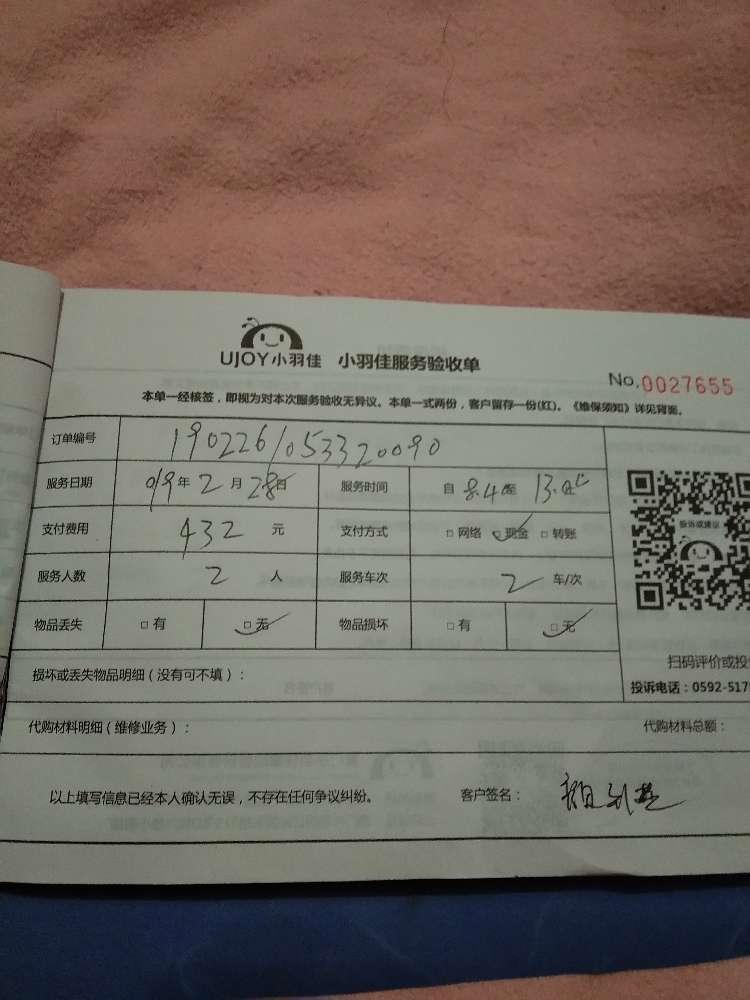 UJOY小羽佳 小羽佳服务验收单
No.0027655
本单一经核签，即视为对本次服务验收无异议。本单一式两份，客户留存一份(红)。《维保须知》详见背面。
订单编号 1902261053320090
服务日期 019年2月28日 服务时间 自 8.4 至 13.
支付费用 432 元 支付方式 □网络 □现金 □转账
投诉或建议
服务人数 2 人 服务车次 2 车/次
物品丢失 □有 □无 物品损坏 □有 □无
扫码评价或投
损坏或丢失物品明细（没有可不填）：
投诉电话：0592-517
代购材料明细（维修业务）： 代购材料总额：
以上填写信息已经本人确认无误，不存在任何争议纠纷。 客户签名：